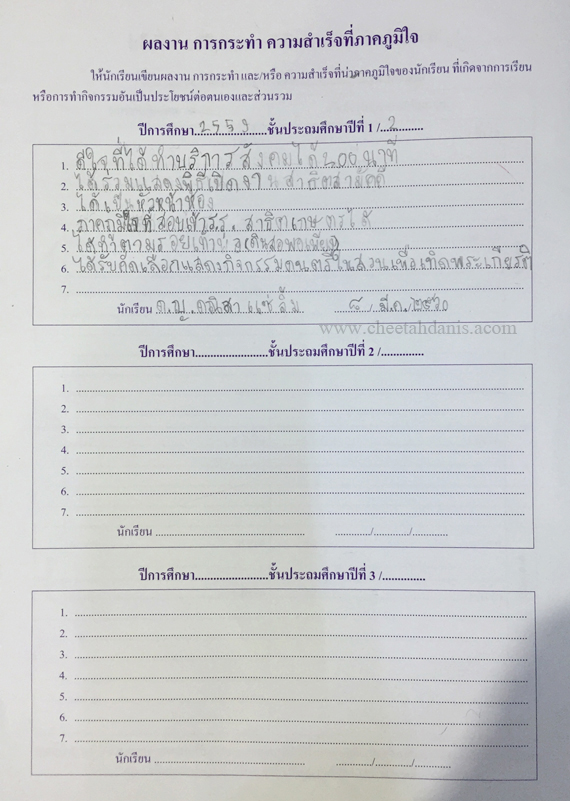 ผลงาน การกระทำ ความสำเร็จที่ภาคภูมิใจ
ให้นักเรียนเขียนผลงาน การกระทำ และ/หรือ ความสำเร็จที่น่าภาคภูมิใจของนักเรียน ที่เกิดจากการเรียน
หรือการทำกิจกรรมอันเป็นประโยชน์ต่อตนเองและส่วนรวม
ปีการศึกษา 2559 ชั้นประถมศึกษาปีที่ 1 / 2
1. ดีใจที่ได้ทำบริการสังคมได้ 200 นาที
2. ได้ร่วมแสดงพิธีเปิดงานสาธิตสามัคคี
3. ได้เป็นหัวหน้าห้อง
4. ภาคภูมิใจที่สอบเข้าร.ร. สาธิตเกษตรได้
5. ได้ทำตามรอยเท้าพ่อ (ดินสอพอเพียง)
6. ได้รับคัดเลือกแสดงกิจกรรมดนตรีในสวนเพื่อเทิดพระเกียรติ
7.
นักเรียน ด.ญ. แซ่ลิ้ม ๘ / มี.ค. / ๒๕๖๐
www.cheetahdanis.acom
ปีการศึกษา ชั้นประถมศึกษาปีที่ 2 /
1.
2.
3.
4.
5.
6.
7.
นักเรียน / /
ปีการศึกษา ชั้นประถมศึกษาปีที่ 3 /
1.
2.
3.
4.
5.
6.
7.
นักเรียน / /